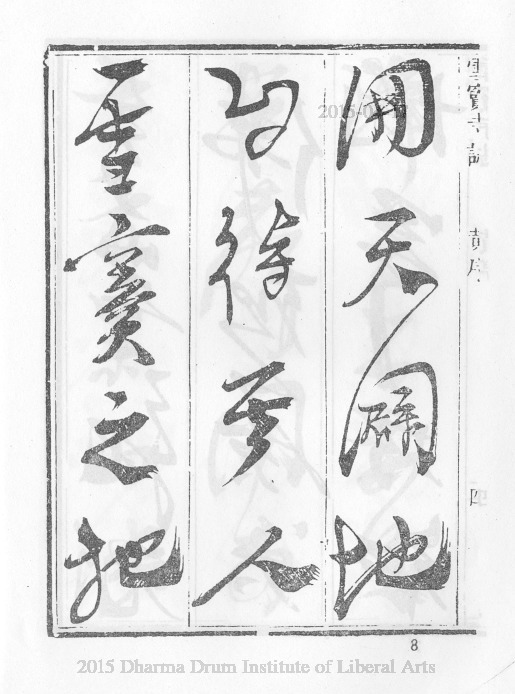 雪竇寺誌
四
開天闢地
以待其人
雪竇之把
8
2015 Dharma Drum Institute of Liberal Arts